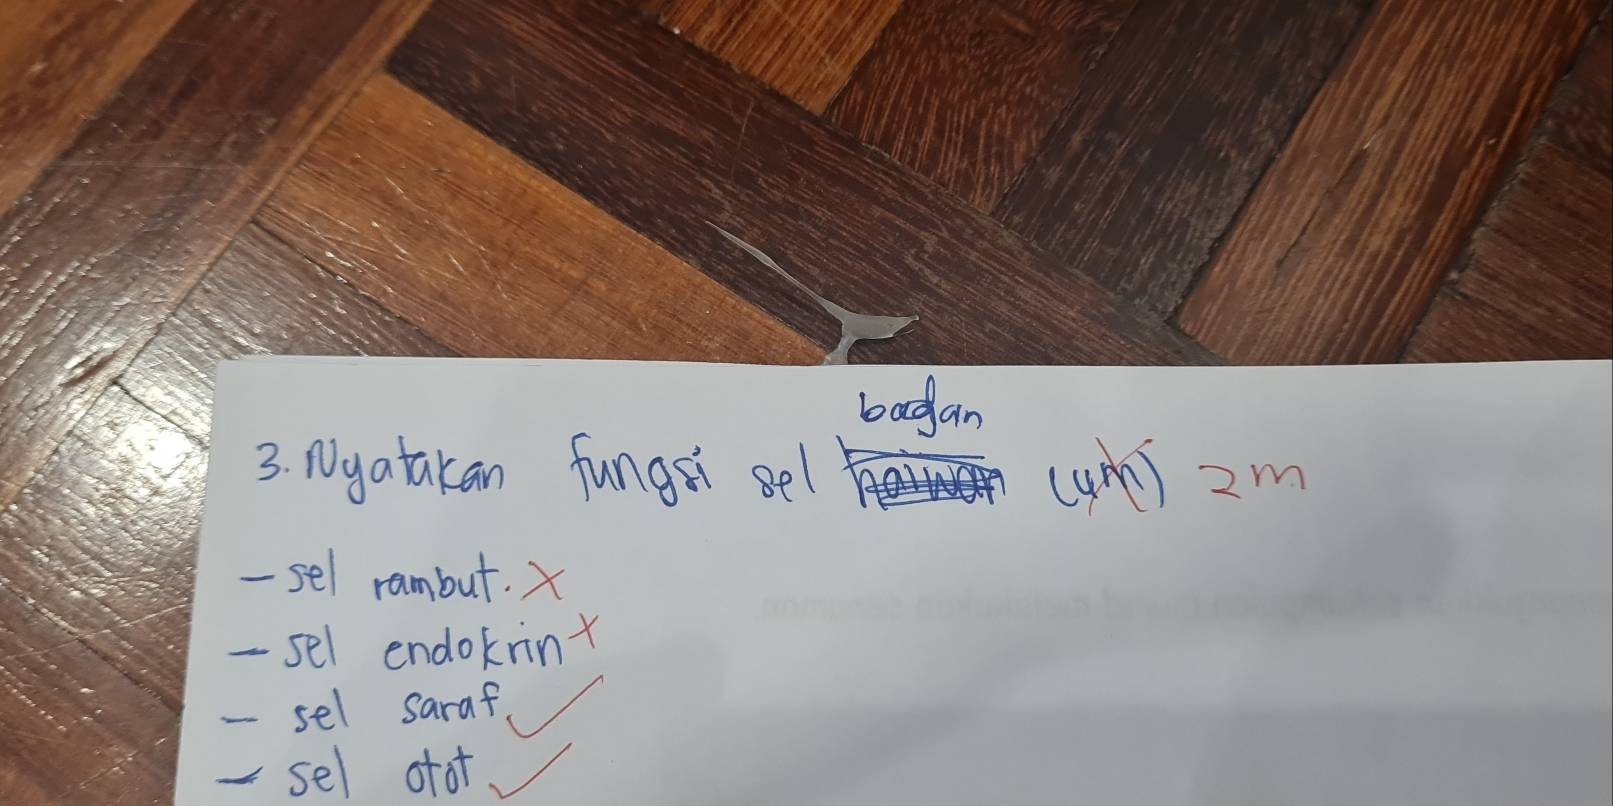 badan
3. Nyatakan fungsi sel haiwan (4m) 2m
- sel rambut. X
- sel endokrin X
- sel saraf ✓
- sel otot ✓